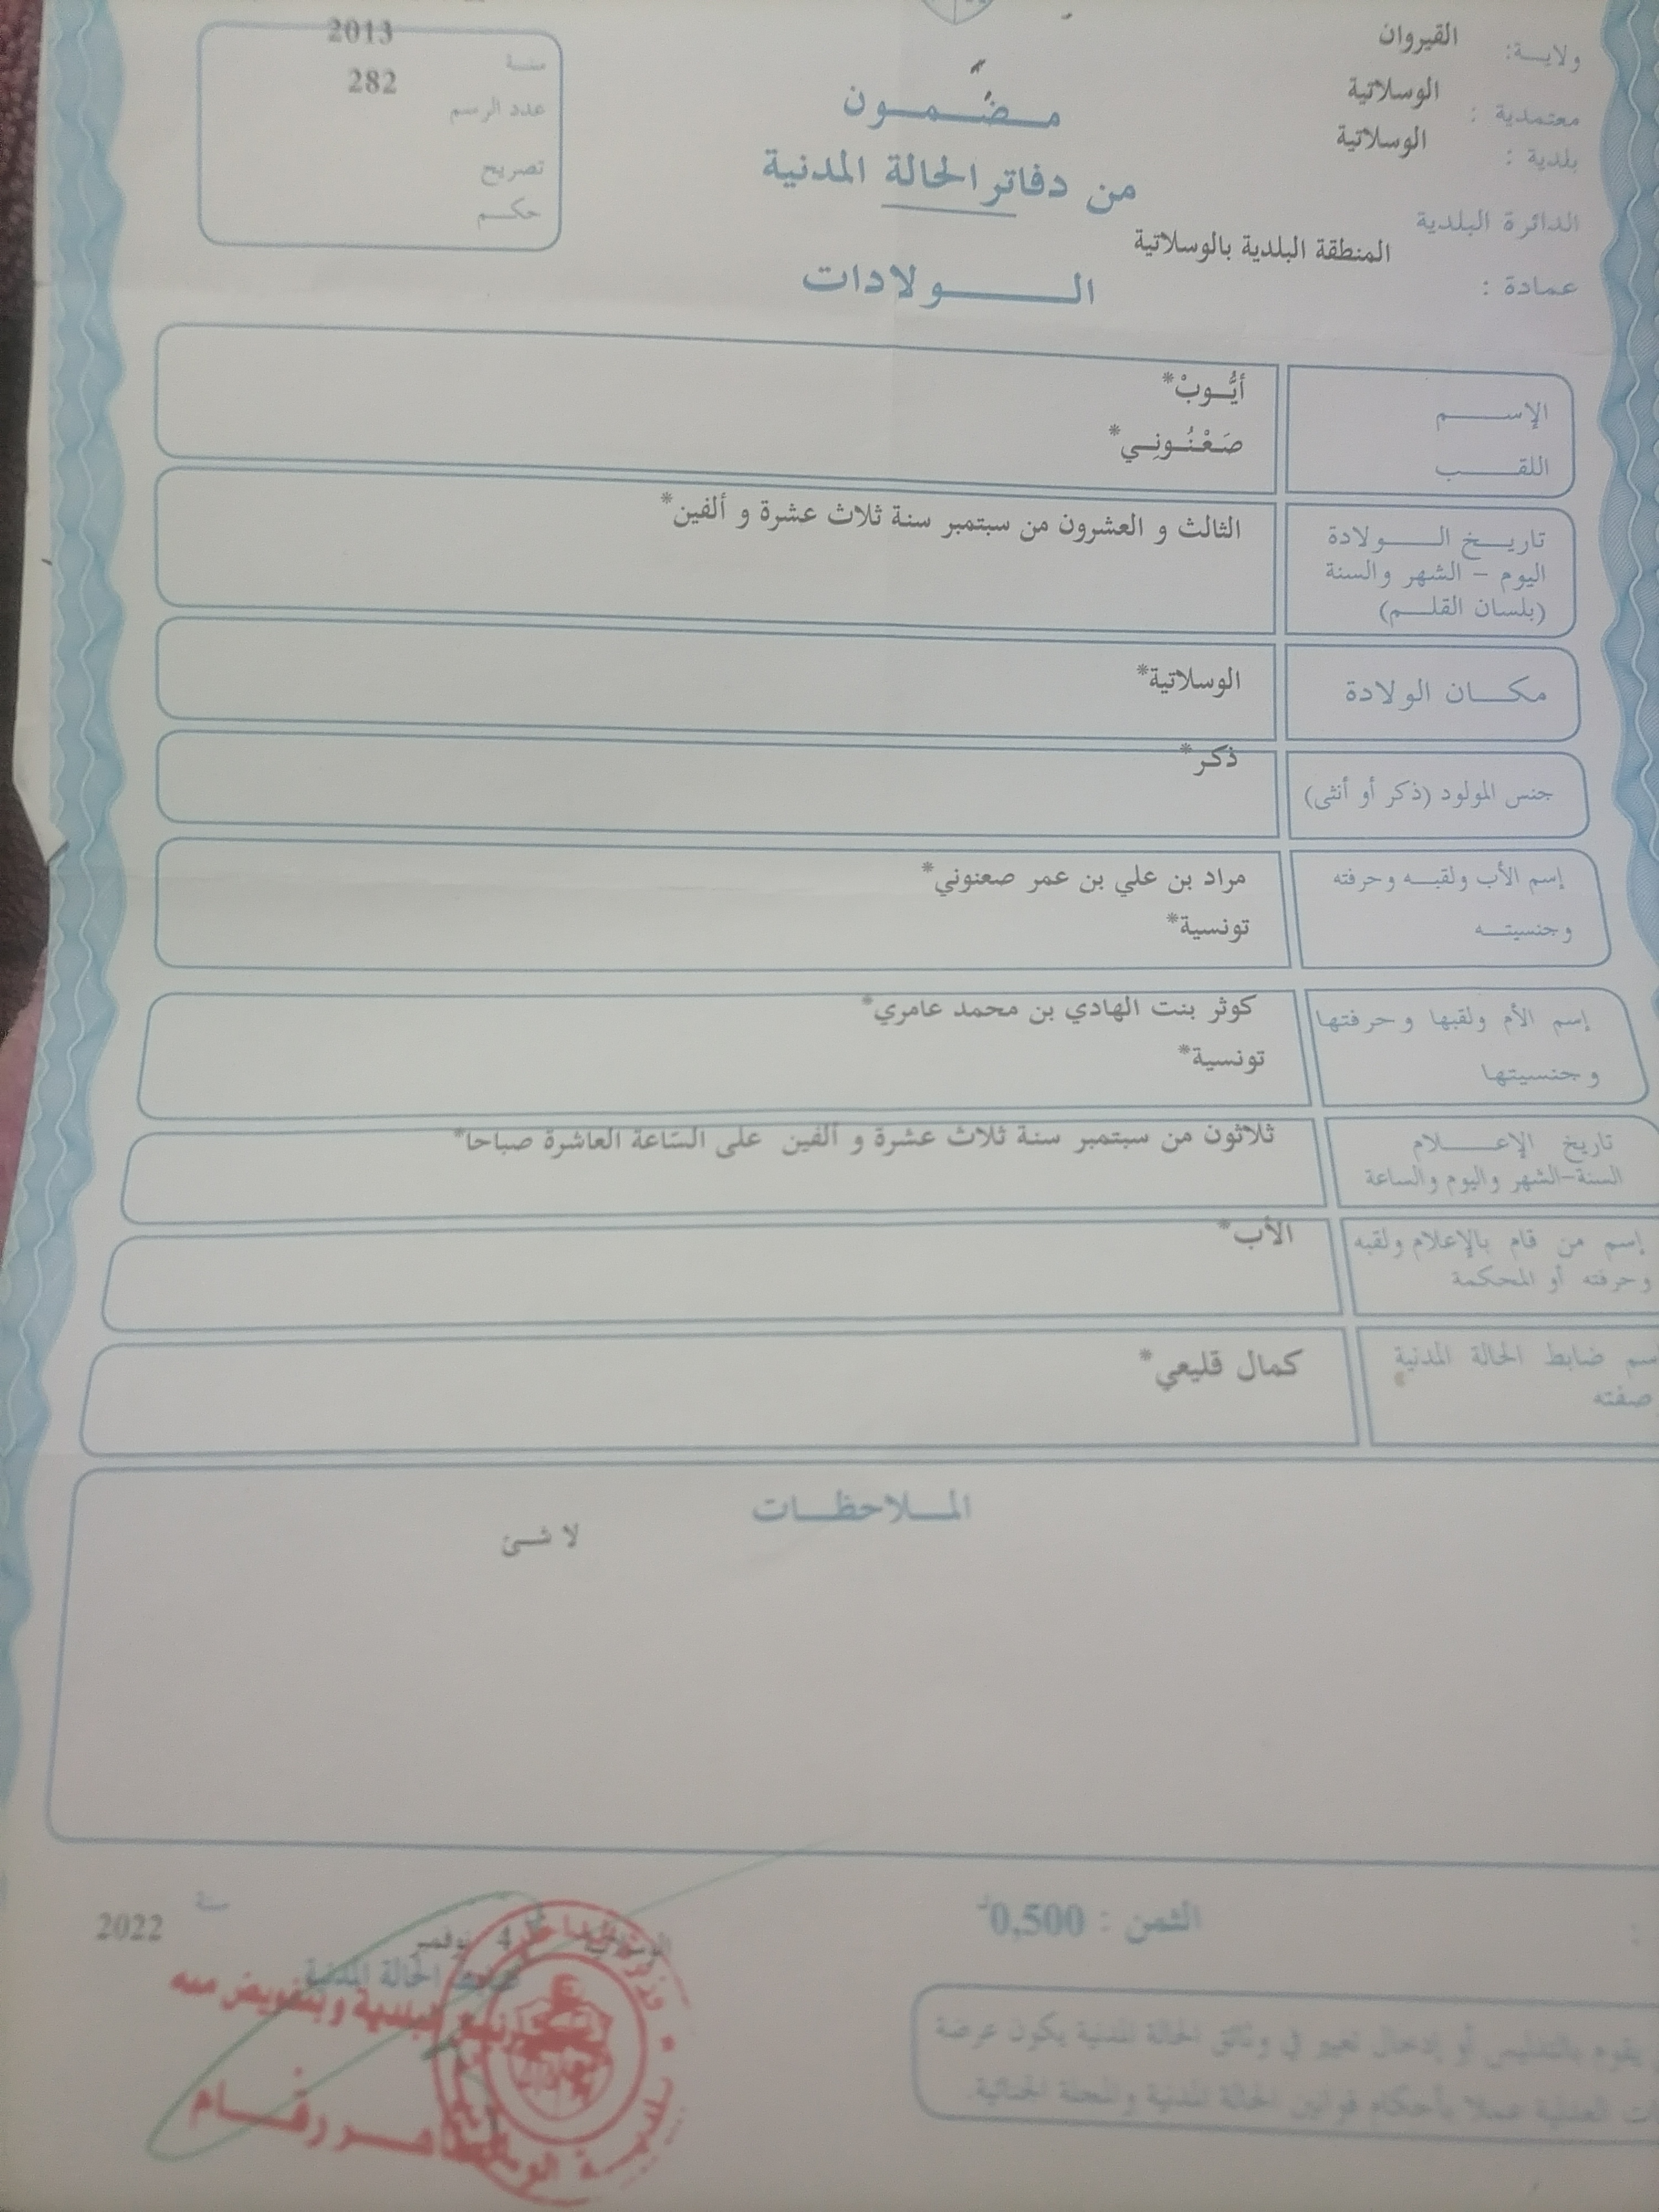 ولاية: القيروان
معتمدية : الوسلاتية
بلدية : الوسلاتية
الدائرة البلدية
المنطقة البلدية بالوسلاتية
عمادة :
مضمون
من دفاتر الحالة المدنية
الولادات
سنة 2013
عدد الرسم 282
تصريح
حكم
الإسم أيُّوبْ*
اللقب صَعْنُونِي*
تاريخ الولادة
اليوم - الشهر والسنة
(بلسان القلم)
الثالث و العشرون من سبتمبر سنة ثلاث عشرة و ألفين*
مكان الولادة الوسلاتية*
جنس المولود (ذكر أو أنثى) ذكر*
إسم الأب ولقبه وحرفته مراد بن علي بن عمر صعنوني*
وجنسيته تونسية*
إسم الأم ولقبها وحرفتها كوثر بنت الهادي بن محمد عامري*
وجنسيتها تونسية*
تاريخ الإعلام
السنة-الشهر واليوم والساعة
ثلاثون من سبتمبر سنة ثلاث عشرة و ألفين على السّاعة العاشرة صباحا*
إسم من قام بالإعلام ولقبه
وحرفته أو المحكمة
الأب*
ضابط الحالة المدنية
صفته
كمال قليعي*
الملاحظات
لا شئ
الثمن : 0,500د
4 نوفمبر سنة 2022
ضابط الحالة المدنية
وبتفويض منه
يقوم بالتدليس أو إدخال تغيير في وثائق الحالة المدنية يكون عرضة
العدلية عملا بأحكام قوانين الحالة المدنية والمجلة الجنائية.